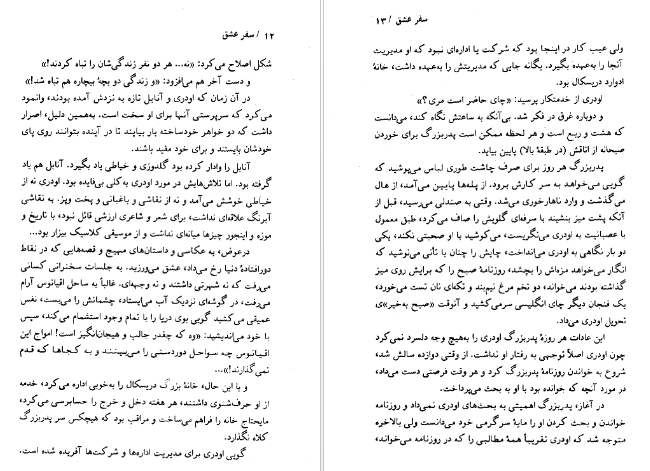 ۱۲ / سفر عشق
شکل اصلاح می‌کرد: «نه... هر دو نفر زندگی‌شان را تباه کردند!»
و دست آخر هم می‌افزود: «و زندگی دو بچهٔ بیچاره هم تباه شد!»
در آن زمان که اودری و آنابل تازه به نزدش آمده بودند، وانمود
می‌کرد که سرپرستی آنها برای او سخت است. به‌همین دلیل، اصرار
داشت که دو خواهر خودساخته بار بیایند تا در آینده بتوانند روی پای
خودشان بایستند و برای خود مفید باشند.
آنابل را وادار کرده بود گلدوزی و خیاطی یاد بگیرد. آنابل هم یاد
گرفته بود. اما تلاش‌هایش در مورد اودری به کلی بی‌فایده بود. اودری نه از
خیاطی خوشش می‌آمد و نه از نقاشی و باغبانی و پخت وپز. به نقاشی
آبرنگ علاقه‌ای نداشت، برای شعر و شاعری ارزشی قائل نبود، با تاریخ و
موزه و اینجور چیزها میانه‌ای نداشت و از موسیقی کلاسیک بیزار بود...
درعوض، به عکاسی و داستان‌های مهیج و قصه‌هایی که در نقاط
دورافتادهٔ دنیا رخ می‌داد، عشق می‌ورزید. به جلسات سخنرانی کسانی
می‌رفت که نه شهرتی داشتند و نه وجهه‌ای. غالباً به ساحل اقیانوس آرام
می‌رفت، در گوشه‌ای نزدیک آب می‌ایستاد، چشمانش را می‌بست، نفس
عمیقی می‌کشید گویی بوی دریا را با تمام وجود استشمام می‌کند، سپس
با خود می‌اندیشید: «وه که چقدر جالب و هیجان‌انگیز است! امواج این
اقیانوس چه سواحل دوردستی را می‌بینند و به کجاها که قدم
نمی‌گذارند!»...
و با این حال، خانهٔ بزرگ دریسکال را به‌خوبی اداره می‌کرد، خدمه
از او حرف‌شنوی داشتند، هر هفته دخل و خرج را حسابرسی می‌کرد،
مایحتاج خانه را فراهم می‌ساخت و مراقب بود که هیچکس سر پدربزرگ
کلاه نگذارد.
گویی اودری برای مدیریت اداره‌ها و شرکت‌ها آفریده شده است.
سفر عشق / ۱۳
ولی عیب کار در اینجا بود که شرکت یا اداره‌ای نبود که او مدیریت
آنجا را به‌عهده بگیرد. یگانه جایی که مدیریتش را به‌عهده داشت، خانهٔ
ادوارد دریسکال بود.
اودری از خدمتکار پرسید: «چای حاضر است مری؟»
و دوباره غرق در فکر شد. بی‌آنکه به ساعتش نگاه کند، می‌دانست
که هشت و ربع است و هر لحظه ممکن است پدربزرگ برای خوردن
صبحانه از اتاقش (در طبقهٔ بالا) پایین بیاید.
پدربزرگ هر روز برای صرف چاشت طوری لباس می‌پوشید که
گویی می‌خواهد به سر کارش برود. از پله‌ها پایین می‌آمد، از هال
می‌گذشت و وارد ناهارخوری می‌شد. وقتی به صندلی می‌رسید، قبل از
آنکه پشت میز بنشیند با سرفه‌ای گلویش را صاف می‌کرد، طبق معمول
با عصبانیت به اودری می‌نگریست، می‌کوشید با او صحبتی نکند، یکی
دو بار نگاهی به اودری می‌انداخت، چایش را چنان با تأنی می‌نوشید که
انگار می‌خواهد مزه‌اش را بچشد، روزنامهٔ صبح را که برایش روی میز
گذاشته بودند می‌خواند، دو تخم مرغ نیم‌بند و تکه‌ای نان تست می‌خورد،
یک فنجان دیگر چای انگلیسی سرمی‌کشید و آنوقت «صبح به‌خیر»ی
تحویل اودری می‌داد.
این عادات هر روزهٔ پدربزرگ اودری را به‌هیچ وجه دلسرد نمی‌کرد
چون اودری اصلاً توجهی به رفتار او نداشت. از وقتی دوازده سالش شد،
شروع به خواندن روزنامهٔ پدربزرگ کرد و هر وقت فرصتی دست می‌داد،
در مورد آنچه که خوانده بود با او به بحث می‌پرداخت.
در آغاز، پدربزرگ اهمیتی به بحث‌های اودری نمی‌داد و روزنامه
خواندن و بحث کردن او را مایهٔ سرگرمی خود می‌دانست ولی بالاخره
متوجه شد که اودری تقریباً همهٔ مطالبی را که در روزنامه می‌خواند،